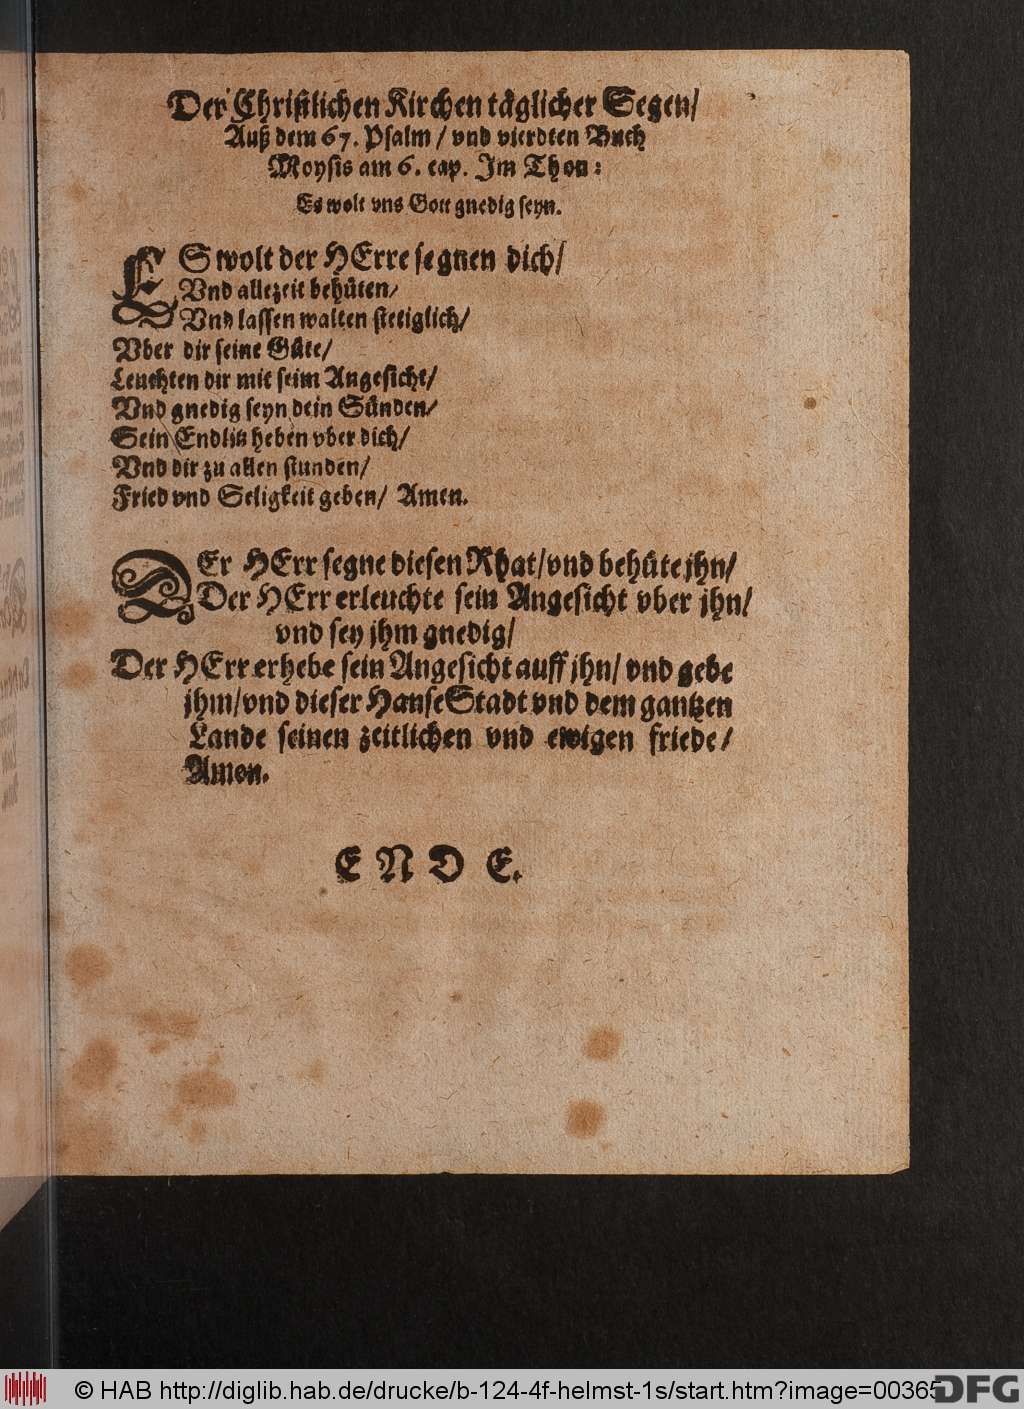 Der Christlichen Kirchen täglicher Segen/
Auß dem 67. Psalm/ vnd vierdten Buch
Moysis am 6. cap. Im Thon:
Es wolt vns Gott gnedig seyn.
ES wolt der HErre segnen dich/
Vnd allezeit behüten/
Vnd lassen walten stetiglich/
Vber dir seine Güte/
Leuchten dir mit seim Angesicht/
Vnd gnedig seyn dein Sünden/
Sein Endlitz heben vber dich/
Vnd dir zu allen stunden/
Fried vnd Seligkeit geben/ Amen.
DEr HErr segne diesen Rhat/vnd behüte jhn/
Der HErr erleuchte sein Angesicht vber jhn/
vnd sey jhm gnedig/
Der HErr erhebe sein Angesicht auff jhn/ vnd gebe
jhm/vnd dieser HanseStadt vnd dem gantzen
Lande seinen zeitlichen vnd ewigen friede/
Amen.
E N D E.
© HAB http://diglib.hab.de/drucke/b-124-4f-helmst-1s/start.htm?image=00365
DFG